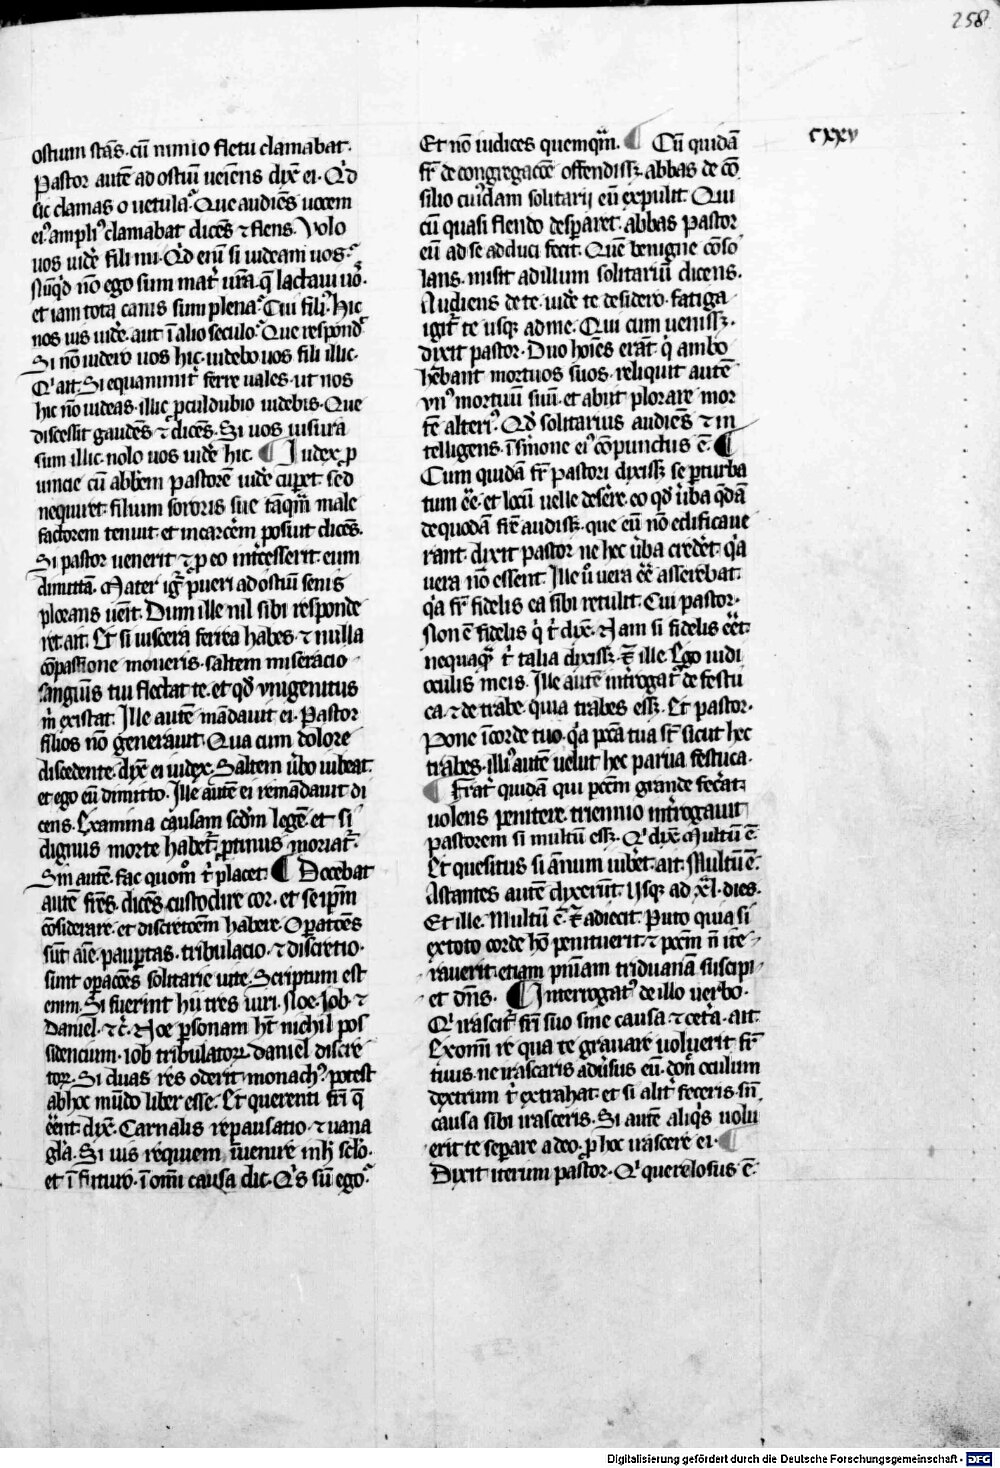 258
cxxv
ostium stās. cū nimio fletu clamabat.
Pastor autē ad ostiū ueiens dix̄ ei. Qͥd
sic clamas o uetula. Que audiēs uocem
eiꝰ ampliꝰ clamabat dicēs ⁊ flens. Volo
uos uidē fili mi. Qͥd enī si uideam uos.
Nūqͥd nō ego sum mat̄ ur̄a. q̄ lactaui uōs.
et iam tota canis sum plena. Cui filiꝰ. Hic
nos uis uidē. aut ī alio seculo. Que respond̄.
Si nō uidero uos hic. uidebo uos fili illic.
Qͥ ait. Si equanimit̄ ferre uales. ut nos
hic nō uideas. illic ꝓculdubio uidebis. Que
discessit gaudēs ⁊ dicēs. Si uos uisura
sum illic. nolo uos uidē hic. ¶ Iudex ꝓ
uincie cū abbēm pastorē uidē cuꝑet. sed
nequiret. filium sororis sue tāqͣm male
factorem tenuit. et in carcēm posuit dicēs.
Si pastor uenerit ⁊ ꝓ eo int̄cesserit. eum
dimittā. Mater igͥ pueri ad ostiū senis
plorans uēit. Dum ille nil sibi responde
ret. ait. Et si uiscera ferrea habes. ⁊ nulla
cōpassione moueris. saltem miseracio
sanguis tui flectat te. et qd̄ vnigenitus
m̄ existat. Ille autē mādauit ei. Pastor
filios nō generauit. Qua cum dolore
discedente. dix̄ ei iudex. Saltem ūbo iubeat.
et ego eū dimitto. Ille autē ei remādauit di
cens. Examina causam scdm̄ legē. et si
dignus morte habet̄. ꝓtinus moriat̄.
Sin autē. fac quom̄ t̄ placet. ¶ Docebat
autē fr̄es. dicēs. custodire cor. et se ip̄m
cōsiderare. et discretōem habere. Opatōēs
sūt aīe. paupͣtas. tribulacio. ⁊ discretio.
sunt opacōēs solitarie uite. Scriptum est
enim. Si fuerint hii tres uiri. Noe. Job. ⁊
Daniel. ⁊c̄. Noe ꝑsonam hn̄t nichil pos
sidencium. iob tribulatorꝝ. daniel discre
torꝝ. Si duas res oderit monachꝰ. potest
ab hoc mūdo liber esse. Et querenti fr̄i q̄
eēnt. dix̄. Carnalis repausatio. ⁊ uana
gla. Si uis requiem īuenire in hͦ sclō.
et ī futuro. ī omī causa dic. Qͥs sū ego.
Et nō iudices quemqͣm. ¶ Cū quidā
fr̄ de congregacōe offendissꝫ. abbas de cō
silio cuiꝰdam solitarij eū expulit. Qui
cū quasi flendo desꝑaret. abbas pastor
eū ad se adduci fecit. Quē benigne cōso
lans. misit ad illum solitariū dicens.
Audiens de te. uidē te desidero. fatiga
igit̄ te usqꝫ ad me. Qui cum uenissꝫ.
dixit pastor. Duo hoīes erāt. qͥ ambo
hēbant mortuos suos. reliquit autē
vnꝰ mortuū suū. et abiit plorare mor
tē alteriꝰ. Qd̄ solitarius audiēs ⁊ in
telligens. ī sm̄one eiꝰ cōpunctus ē. ¶
Cum quidā fr̄ pastori dixissꝫ se ꝑturba
tum eē. et locū uelle deserē. eo qd̄ ūba qd̄ā
de quodā fr̄e audissꝫ. que eū nō edificaue
rant. dixit pastor ne hec ūba credēt. qͥa
uera nō essent. Ille ū uera eē asserebat.
qͥa fr̄ fidelis ea sibi retulit. Cui pastor.
Non ē fidelis qͥ t̄ dix̄. Nam si fidelis eēt.
nequaqͣ t̄ talia dixissꝫ. Et ille. Ego uidi
oculis meis. Ille autē int̄rogat̄ de festu
ca. ⁊ de trabe. quia trabes essꝫ. Et pastor.
Pone ī corde tuo. qͥa pcā tua st̄ sicut hec
trabes. illiꝰ autē uelut hec parua festuca.
¶ Frat̄ quidam qui pcm̄ grande fecāt
uolens penitere. triennio int̄rogauit
pastorem si multū essꝫ. Qͥ dix̄. Multū ē.
Et quesitus si annum iubēt. ait. Multū ē.
Astantes autē dixerūt. Usqꝫ ad xl. dies.
Et ille. Multū ē. Et adiecit. Puto quia si
ex toto corde hō penituerit. ⁊ pcm̄ n̄ ite
rauerit. etiam pn̄iam triduanā suscipi
et dn̄s. ¶ Interrogatꝰ de illo uerbo.
Qͥ irascit̄ fr̄i suo sine causa ⁊ cetͣa. ait.
Ex om̄i re qua te grauare uoluerit fr̄
tuus. ne irascaris aduīsus eū. don̄ oculum
dextrum t̄ extrahat. et si alit̄ feceris. sin̄
causa sibi irasceris. Si autē aliqͥs uolu
erit te separe a deo. ꝓ hoc irascere ei. ¶
Dixit iterum pastor. Qͥ querelosus ē.
Digitalisierung gefördert durch die Deutsche Forschungsgemeinschaft - DFG